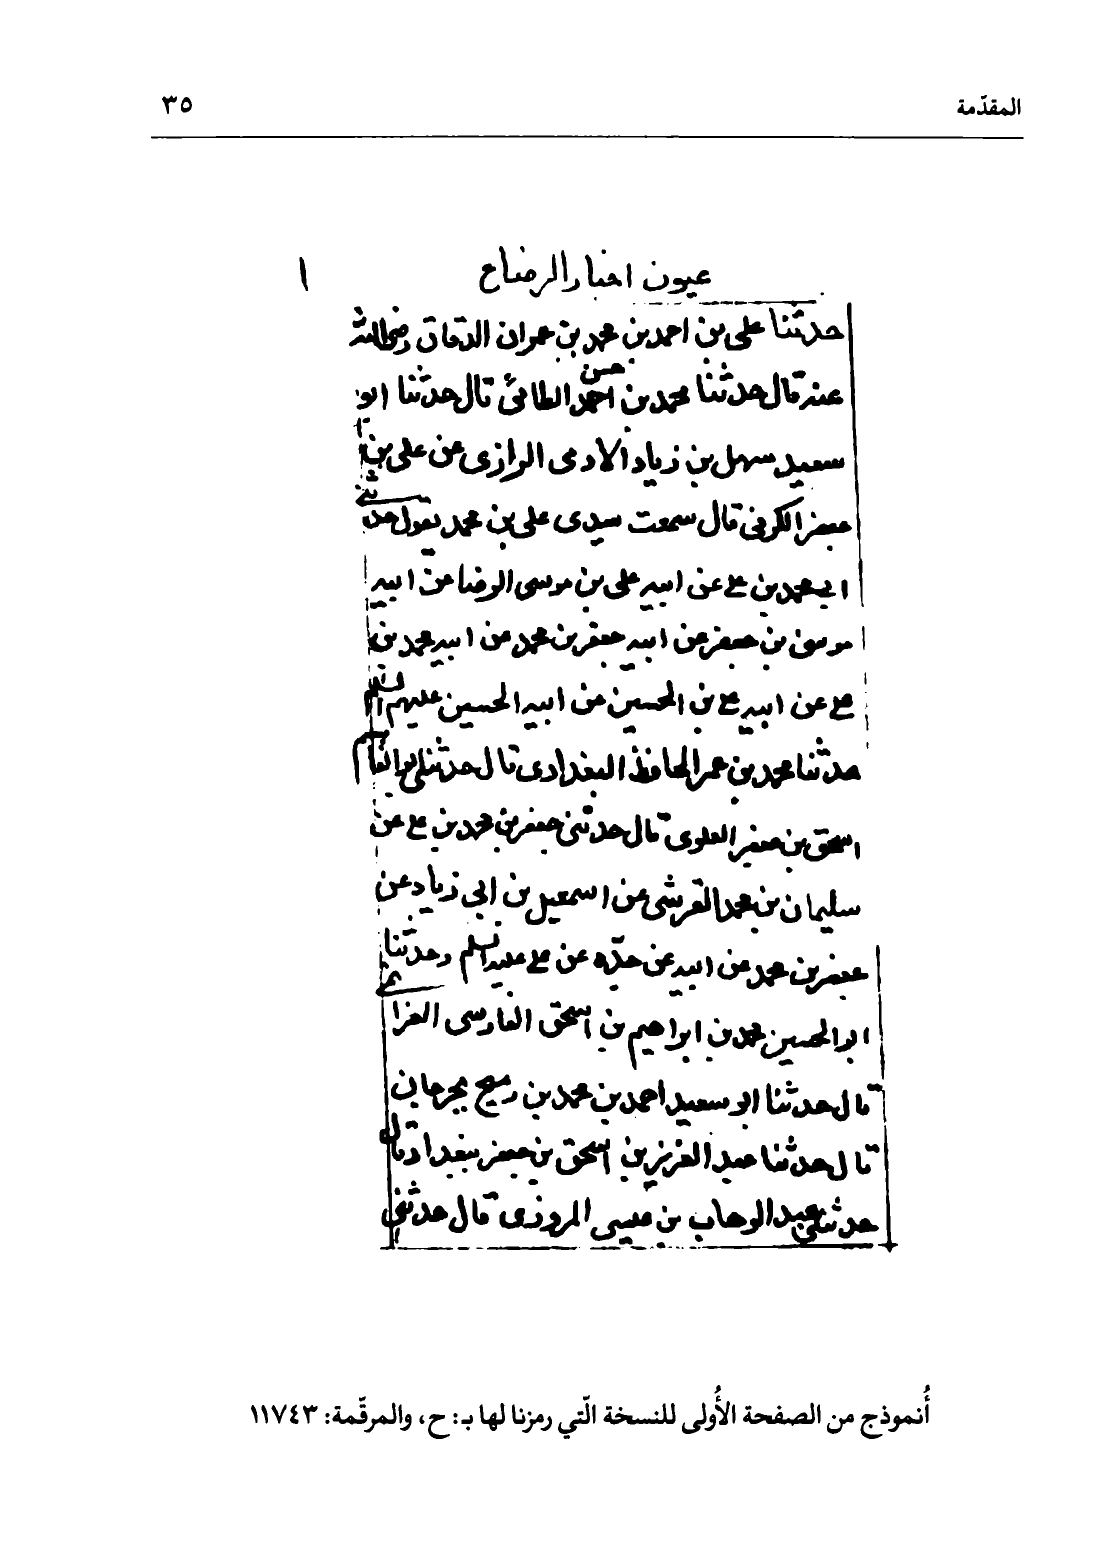 المقدّمة ٣٥
عيون اخبار الرضا ع ١
حدثنا علی بن احمد بن محمد بن عمران الدقاق رضی الله
عنه قال حدثنا محمد بن احمد حسن الطائی قال حدثنا ابو
سعید سهل بن زیاد الادمی الرازی عن علی بن
جعفر الکوفی قال سمعت سیدی علی بن محمد یقول حدثنی
ابی محمد بن علی عن ابیه علی بن موسی الرضا عن ابیه
موسی بن جعفر عن ابیه جعفر بن محمد عن ابیه محمد بن
علی عن ابیه علی بن الحسین عن ابیه الحسین علیهم السلم
حدثنا محمد بن عمر الحافظ البغدادی قال حدثنی ابو القاسم
اسحق بن جعفر العلوی قال حدثنی جعفر بن محمد بن علی عن
سلیمان بن محمد القرشی عن اسمعیل بن ابی زیاد عن
جعفر بن محمد عن ابیه عن جدّه عن علی علیه السلم وحدثنا
ابو الحسین محمد بن ابراهیم بن اسحق الفارسی العزا
قال حدثنا ابو سعید احمد بن محمد بن رمیح بجرجان
قال حدثنا عبد العزیز بن اسحق بن جعفر ببغداد قال
حدثنی عبد الوهاب بن عیسی المروزی قال حدثنی
أُنموذج من الصفحة الأُولى للنسخة الّتي رمزنا لها بـ: ح، والمرقّمة: ١١٧٤٣